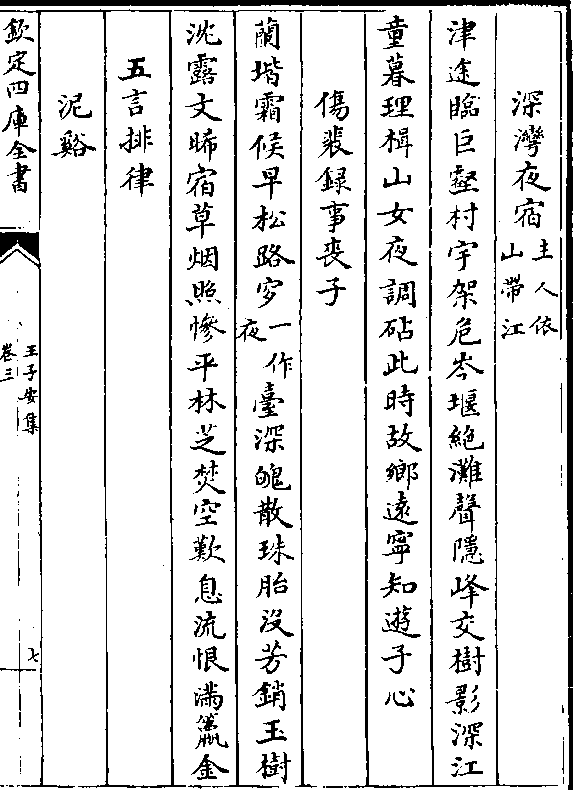 深灣夜宿主人依山帶江
津途臨巨壑村宇架危岑堰絶灘聲隱峰交樹影深江
童暮理楫山女夜調砧此時故鄉遠寧知遊子心
傷裴録事喪子
蘭堦霜候早松路穸一作夜臺深魄散珠胎沒芳銷玉樹
沈露文晞宿草烟照慘平林芝焚空歎息流恨滿籯金
五言排律
泥谿
欽定四庫全書
王子安集
卷三
七